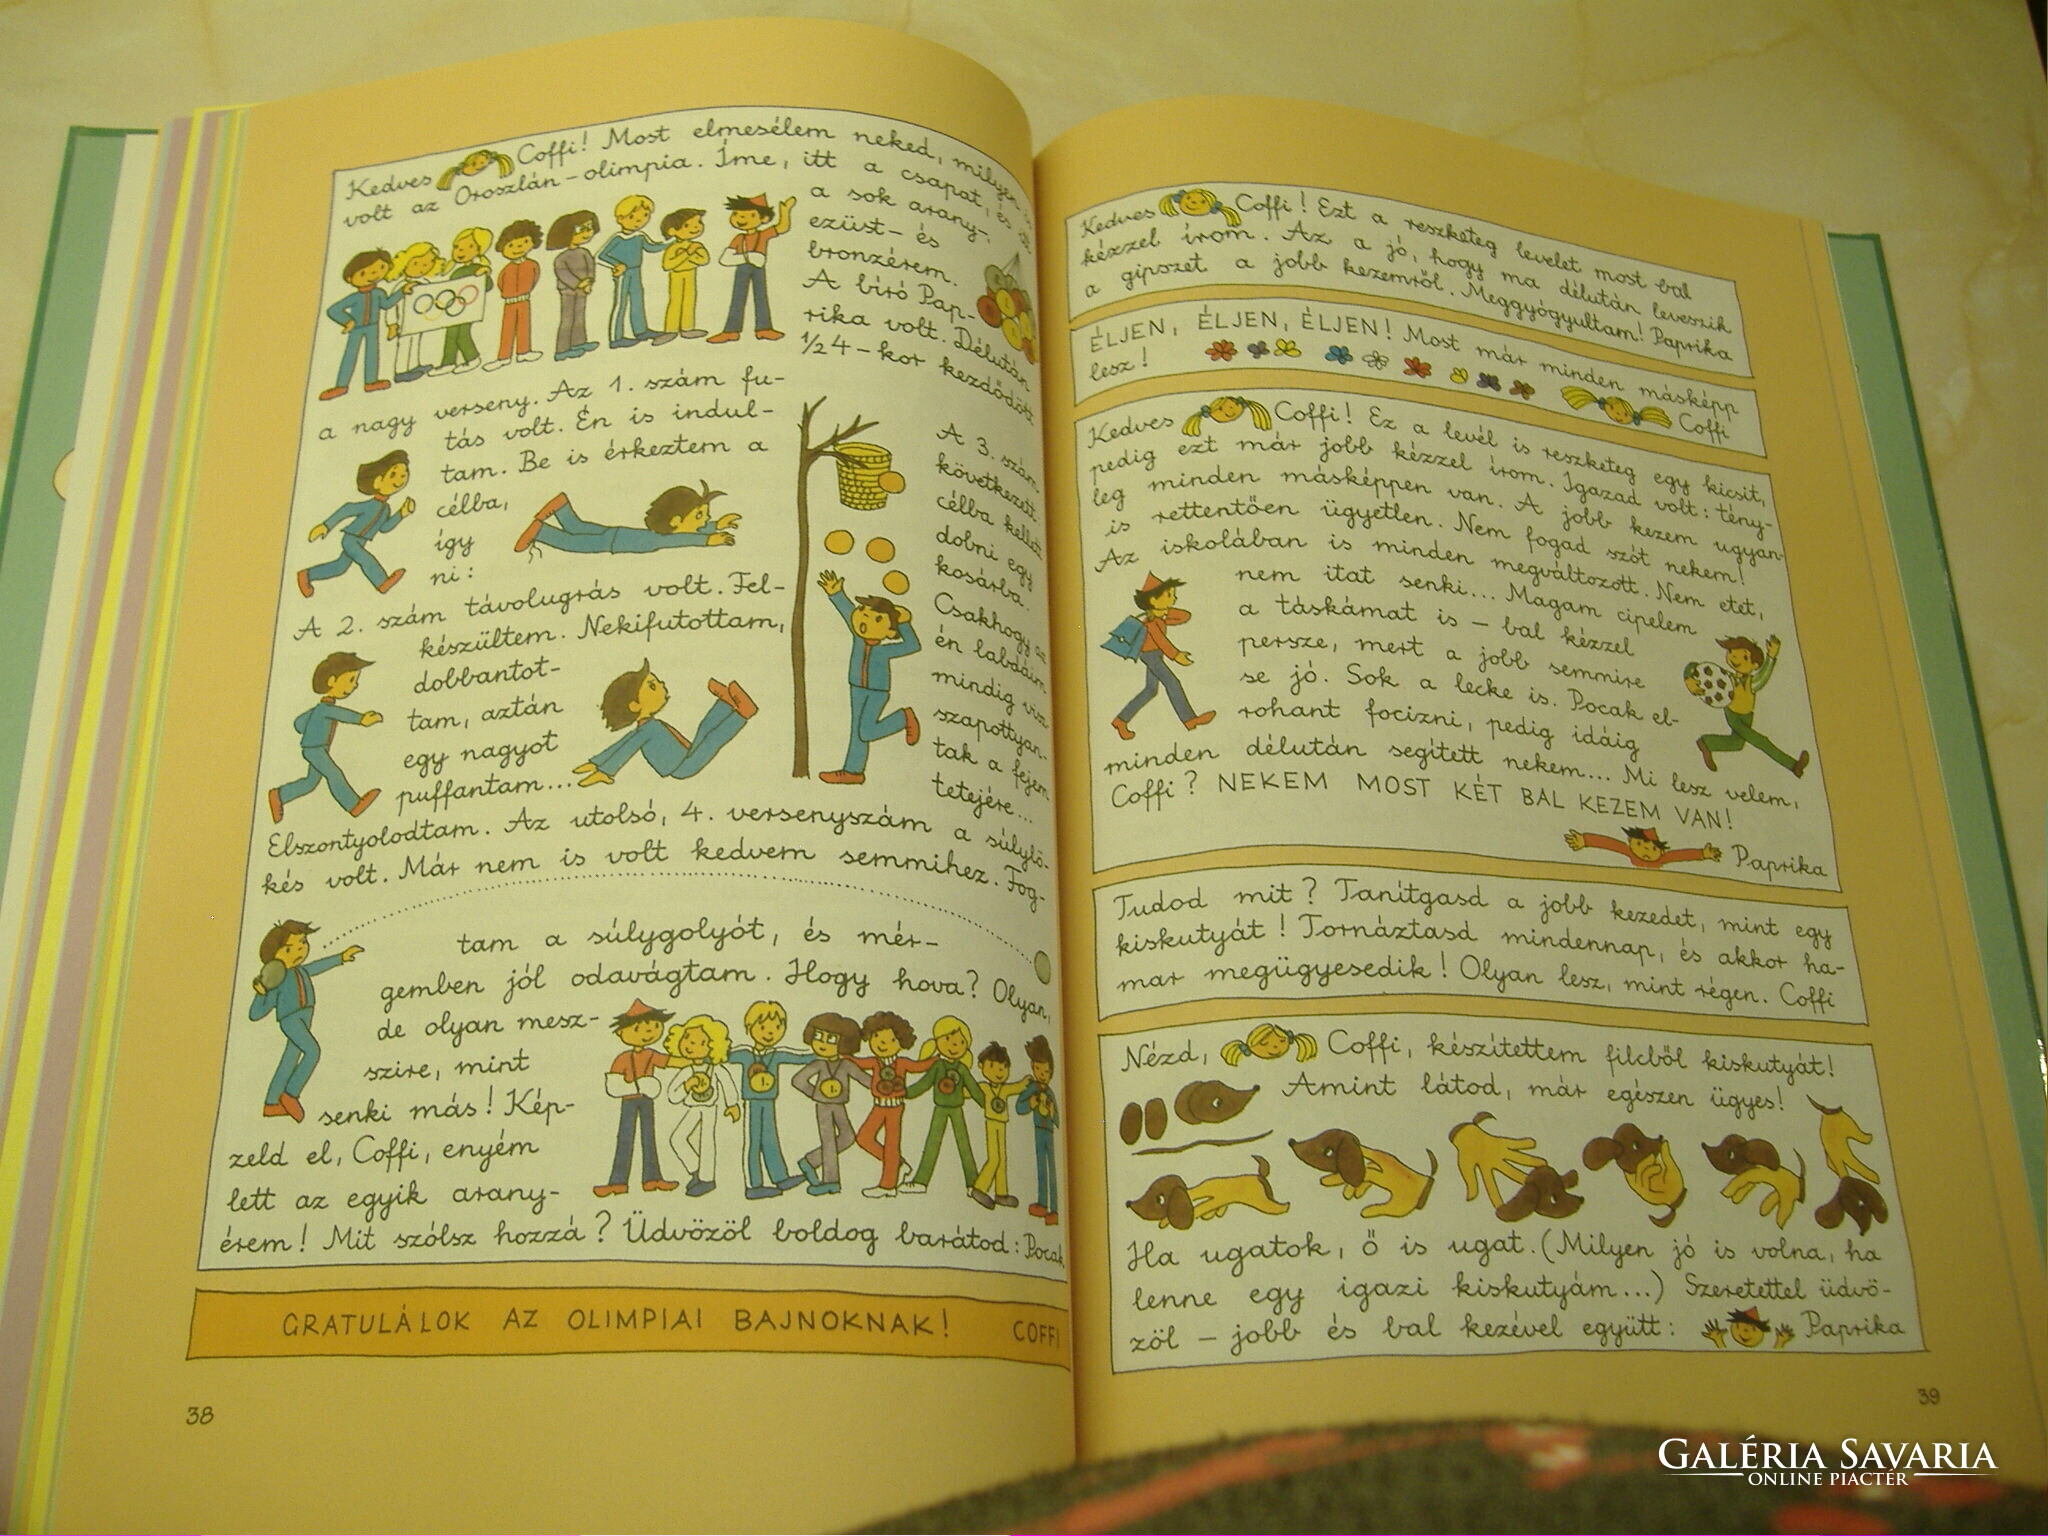 Kedves Coffi! Most elmesélem neked, milyen
volt az Oroszlán-olimpia. Íme, itt a csapat, és
a sok arany-,
ezüst- és
bronzérem.
A bíró Pap-
rika volt. Délután
1/2 4-kor kezdődött
a nagy verseny. Az 1. szám fu-
tás volt. Én is indul-
tam. Be is érkeztem a
célba,
így
ni:
A 2. szám távolugrás volt. Fel-
készültem. Nekifutottam,
dobbantot-
tam, aztán
egy nagyot
puffantam...
A 3. szám
következett:
célba kellett
dobni egy
kosárba.
Csakhogy az
én labdáim
mindig visz-
szapottyan-
tak a fejem
tetejére...
Elszontyolodtam. Az utolsó, 4. versenyszám a súlylö-
kés volt. Már nem is volt kedvem semmihez. Fog-
tam a súlygolyót, és mér-
gemben jól odavágtam. Hogy hova? Olyan,
de olyan mesz-
szire, mint
senki más! Kép-
zeld el, Coffi, enyém
lett az egyik arany-
érem! Mit szólsz hozzá? Üdvözöl boldog barátod: Pocak
GRATULÁLOK AZ OLIMPIAI BAJNOKNAK! COFFI
38
Kedves Coffi! Ezt a reszketeg levelet most bal
kézzel írom. Az a jó, hogy ma délután leveszik
a gipszet a jobb kezemről. Meggyógyultam! Paprika
ÉLJEN, ÉLJEN, ÉLJEN! Most már minden másképp
lesz! Coffi
Kedves Coffi! Ez a levél is reszketeg egy kicsit,
pedig ezt már jobb kézzel írom. Igazad volt: tény-
leg minden másképpen van. A jobb kezem ugyan-
is rettentően ügyetlen. Nem fogad szót nekem!
Az iskolában is minden megváltozott. Nem etet,
nem itat senki... Magam cipelem
a táskámat is - bal kézzel
persze, mert a jobb semmire
se jó. Sok a lecke is. Pocak el-
rohant focizni, pedig idáig
minden délután segített nekem... Mi lesz velem,
Coffi? NEKEM MOST KÉT BAL KEZEM VAN!
Paprika
Tudod mit? Tanítgasd a jobb kezedet, mint egy
kiskutyát! Tornáztasd mindennap, és akkor ha-
mar megügyesedik! Olyan lesz, mint régen. Coffi
Nézd, Coffi, készítettem filcből kiskutyát!
Amint látod, már egészen ügyes!
Ha ugatok, ő is ugat. (Milyen jó is volna, ha
lenne egy igazi kiskutyám...) Szeretettel üdvö-
zöl - jobb és bal kezével együtt: Paprika
39
GALÉRIA SAVARIA
ONLINE PIACTÉR